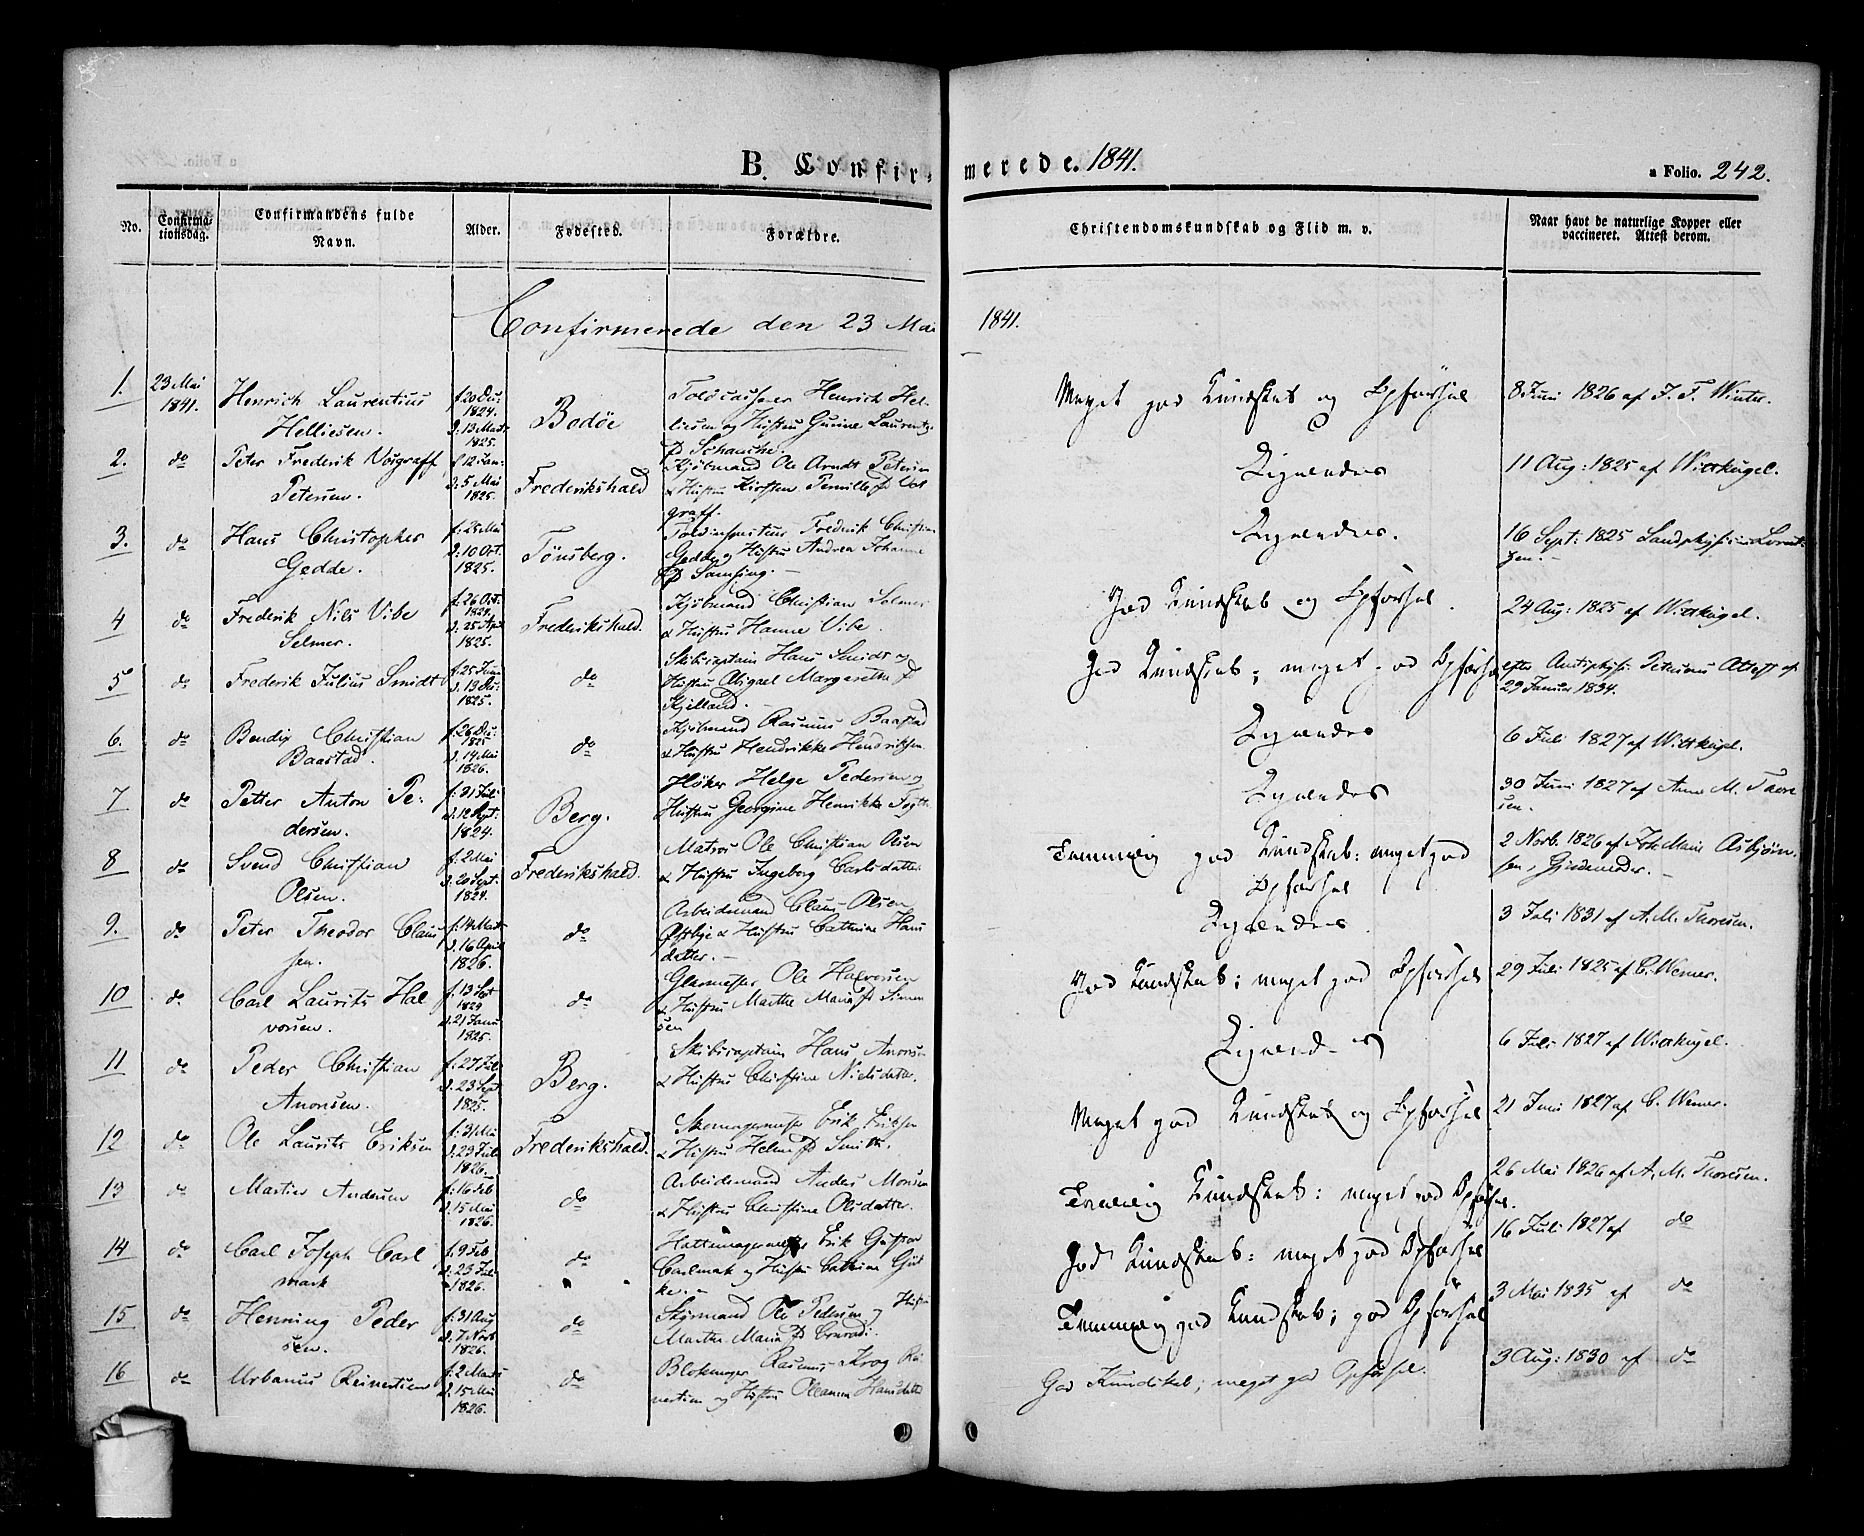 B. Confirmerede. 1841.
a Folio. 242.
No.
Confirmationsdag.
Confirmandens fulde Navn.
Alder.
Fødested.
Forældre.
Christendomskundskab og Flid m. v.
Naar havt de naturlige Kopper eller vaccineret. Attest derom.
Confirmerede den 23 Mai 1841.
1. 23 Mai 1841. Henrich Laurentius Helliesen. f. 20 Dec. 1824. d. 13 Marts 1825. Bodöe
Henrich Helliesen og Hustru Gunine
Meget god Kundskab og Opførsel
8 Juni 1826 af J. F. Winter.
2. do Peter Frederik Vosgraff Petersen. f. 12 Jan: d. 5 Mai 1825. Frederikshald
Kjøbmand Ole Arndt Petersen & Hustru Kirsten Pernille
Ligeledes
11 Aug: 1825 af Wittkugel.
3. do Hans Christopher Gedde. f. 25 Mai d. 10 Oct. 1825. Tönsberg.
Frederik Christian Gedde og Hustru Andrea Johanne f Samsing.
Ligeledes.
16 Sept: 1825
4 do Frederik Nils Vibe Selmer. f. 26 Oct. 1824. d. 25 Apr 1825. Frederikshald.
Kjøbmand Christian Selmer & Hustru Hanne Vibe.
God Kundskab og Opførsel.
24 Aug: 1825 af Wittkugel.
5 do Frederik Julius Smidt f. 25 Juni d. 13 1825. do
Skibscaptain Hans Smidt og Hustru Abigael Margaretha f Kjelland.
God Kundskab; meget god Opførsel
efter Attest af 29 Januar 1834.
6. do Bendix Christian Baastad. f. 26 Dec. 1825 d. 14 Mai 1826. do
Kjøbmand Rasmus Baastad & Hustru Hendrikke Hendriksen
Ligeledes
6 Juli 1827 af Wittkugel.
7 do Petter Anton Pedersen. f. 31 Juli d. 12 Sept: 1824. Berg.
Høker Helge Pedersen og Hustru Georgine Henrikke
Ligeledes
30 Juni 1827 af Anne M. Thoresen.
8 do Svend Christian Olsen. f. 2 Mai d. 20 Sept. 1824. Frederikshald.
Matros Ole Christian Olsen & Hustru Ingeborg Carlsdatter
Temmelig god Kundskab: meget god Opførsel
2 Novb. 1826 af Asbjørnsen, Gjordemoder.
9. do Peter Theodor Clausen. f. 14 Marts d. 16 April 1826. do
Arbeidsmand Claus Olsen Østbye & Hustru Cathrine Hansdatter.
Ligeledes.
3 Juli 1831 af A. M. Thoresen.
10 do Carl Laurits Halvorsen. f. 13 Sept 1824 d. 21 Janu 1825. do
Glarmester Ole Halvorsen & Hustru Marthe Maria f Simensen
God Kundskab; meget god Opførsel
29 Juli 1825 af C. Werner.
11 do Peder Christian Anorsen. f. 27 Juli d. 23 Sept 1825. Berg.
Skibscaptain Hans Anorsen & Hustru Christine Nielsdatter.
Ligeledes
6 Juli 1827 af Wittkugel.
12 do Ole Laurits Eriksen f. 31 Mai d. 23 Juli 1826. Frederikshald.
Erik Eriksen & Hustru Helene f Smith.
Meget god Kundskab og Opførsel
21 Juni 1827 af C. Werner.
13 do Martin Andersen f. 16 Feb d. 15 Mai 1826. do
Arbeidsmand Anders Monsen & Hustru Christine Olsdatter.
Temmelig Kundskab: meget god Opførsel.
26 Mai 1826 af A. M. Thoresen.
14 do Carl Joseph Carlmark f. 9 Feb d. 23 Juli 1826. do
Hattemagermester Erik Gustav Carlmark og Hustru Cathrine
God Kundskab: meget god Opførsel
16 Juli 1827 af do
15 do Henning Pedersen. f. 31 Aug d. 7 Novb 1826. do
Styrmand Ole Pedersen og Hustru Marthe Maria f Conradi.
Temmelig god Kundskab; god Opførsel
3 Mai 1835 af do
16 do Urbanus Reinertsen f. 2 Marts d. 15 Mai 1826. do
Rasmus Krog Reinertsen og Hustru Oleanna Hansdatter
God Kundskab; meget god Opførsel.
3 Aug: 1830 af do